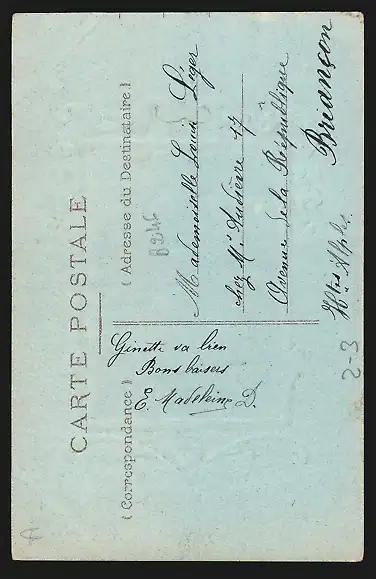 CARTE POSTALE
( Correspondance )
( Adresse du Destinataire.)
Ginette va bien
Bons baisers
E. Madeleine D.
B246
Mademoiselle Louise Liger
chez Mr 17
Avenue de la République
Briançon
Htes Alpes
2-3
A